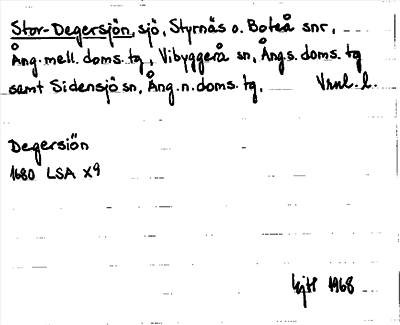 Stor-Degersjön, sjö, Styrnäs o. Boteå snr,
Ång. mell. doms. tg, Vibyggerå sn, Ång.s. doms. tg
samt Sidensjö sn, Ång. n. doms. tg. Vnnl. l.
Degersiön
1680 LSA X9
1968